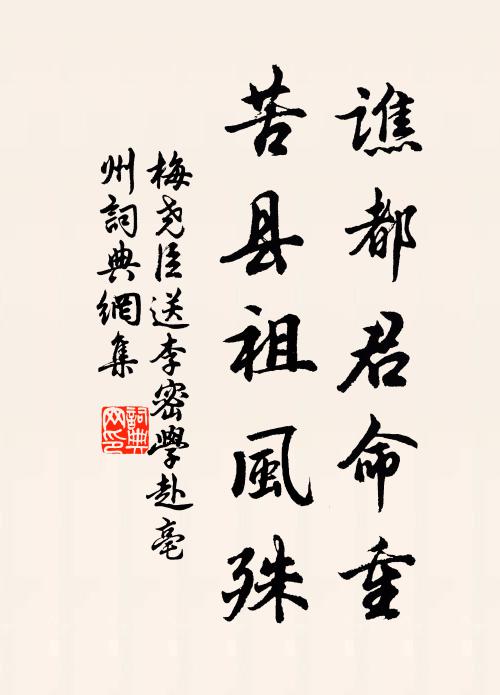 譙都君命重
苦县祖風殊
梅尧臣送李密學赴亳
州詞典網集
詞典网印